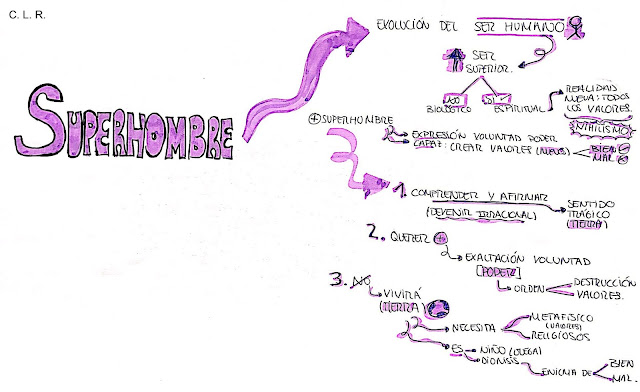 C. L. R.
SUPERHOMBRE
EVOLUCIÓN DEL SER HUMANO
SER
SUPERIOR.
NO
BIOLÓGICO
SÍ
ESPIRITUAL
REALIDAD
NUEVA: TODOS
LOS VALORES.
NIHILISMO
+ SUPERHOMBRE
EXPRESIÓN VOLUNTAD PODER
CAPAZ: CREAR VALORES (NUEVOS)
BIEN
MAL
1. COMPRENDER Y AFIRMAR
(DEVENIR IRRACIONAL)
SENTIDO
TRÁGICO
(TIERRA)
2. QUERER +
EXALTACIÓN VOLUNTAD
[PODER]
ORDEN
DESTRUCCIÓN
VALORES.
3. NO
VIVIRÁ
(TIERRA)
NECESITA
METAFÍSICO
(VALORES)
RELIGIOSOS
ES
NIÑO (JUEGA)
DIONISIS
ENIGMA DE
BIEN
MAL.